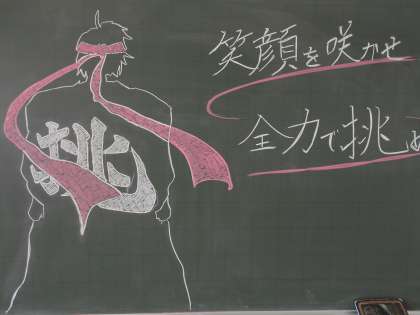 笑顔を咲かせ
全力で挑め
挑